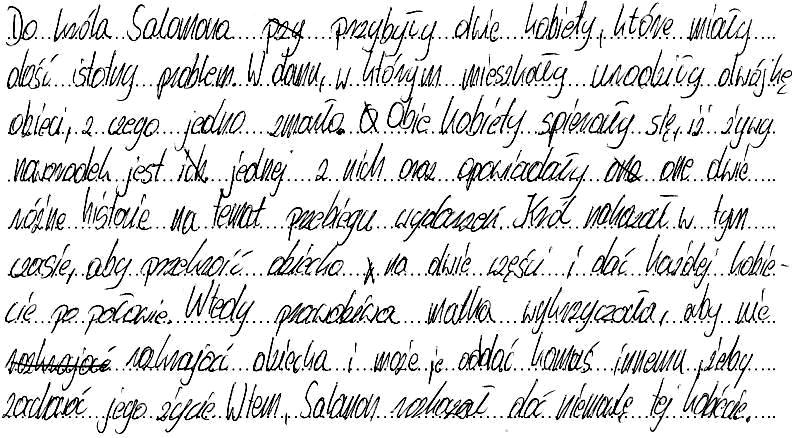 Do króla Salomona przy przybyły dwie kobiety, które miały
dość istotny problem. W domu, w którym mieszkały urodziły dwójkę
dzieci, z czego jedno zmarło. O Obie kobiety spierały się, iż żywy
noworodek jest ich jednej z nich oraz opowiadały one one dwie
różne historie na temat przebiegu wydarzeń. Król nakazał w tym
czasie, aby przekroić dziecko na dwie części i dać każdej kobie-
cie po połowie. Wtedy prawdziwa matka wykrzyczała, aby nie
rozkrajać rozkrajać dziecka i może je oddać komuś innemu, żeby
zachować jego życie. Wtem, Salomon rozkazał dać niemowlę tej kobiecie.